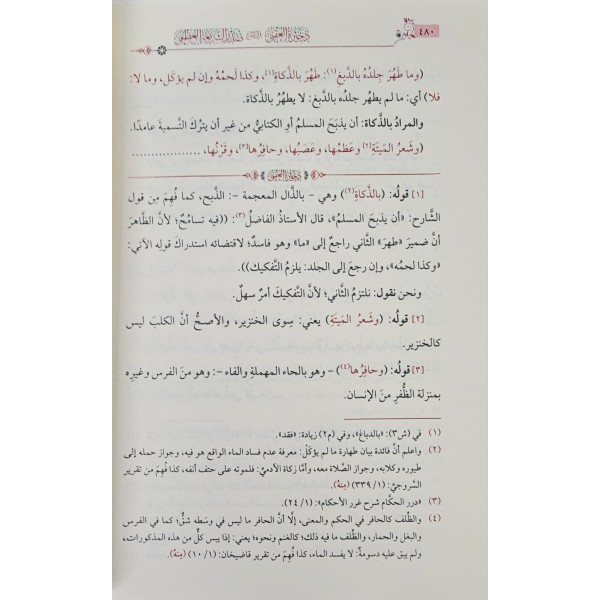 ٤٨٠
(وما طَهُرَ جِلدُهُ بالدَّبغِ(١): طَهُرَ بالذَّكاةِ(١)، وكذا لَحمُهُ وإن لم يؤكَل، وما لا:
فلا) أي: ما لم يطهر جلدُه بالدَّبغ: لا يطهُرُ بالذَّكاة.
والمرادُ بالذَّكاة: أن يذبَحَ المسلمُ أو الكتابيُّ من غير أن يترُكَ التَّسميةَ عامدًا.
(وشَعرُ المَيتَةِ(٢) وعَظمُها، وعَصَبُها، وحافِرُها(٣)، وقَرْنُها، ................
[١] قولُه: (بالذَّكاةِ(٢)) وهي - بالذَّال المعجمة -: الذَّبح، كما فُهِمَ مِن قول
الشَّارح: «أن يذبحَ المسلمُ»، قال الأستاذُ الفاضلُ(٣): ((فيه تسامُحٌ؛ لأنَّ الظَّاهرَ
أنَّ ضميرَ «طهرَ» الثَّاني راجعٌ إلى «ما» وهو فاسدٌ؛ لاقتضائه استدراكَ قولِه الآتي:
«وكذا لحمُه»، وإن رجعَ إلى الجلد: يلزمُ التَّفكيكُ)).
ونحن نقول: نلتزمُ الثَّاني؛ لأنَّ التَّفكيكَ أمرٌ سهلٌ.
[٢] قولُه: (وشَعرُ المَيتَةِ) يعني: سِوى الخنزير، والأصحُّ أنَّ الكلبَ ليس
كالخنزير.
[٣] قولُه: (وحافِرُها(٤)) - وهو بالحاء المهملةِ والفاء -: وهو منَ الفرس وغيرِه
بمنزلة الظُّفرِ منَ الإنسان.
(١) في (ش٣): «بالدباغ»، وفي (م٢) زيادة: «فقد».
(٢) واعلم أنَّ فائدة بيان طهارة ما لم يؤكَلْ: معرفة عدم فساد الماء الواقع هو فيه، وجواز حمله إلى
طيوره وكلابه، وجواز الصَّلاة معه، وأمَّا زكاة الآدميِّ: فلموته على حتف أنفه، كذا فُهِمَ من تقرير
السَّروجيِّ: (١/ ٣٣٩) (مِنهُ).
(٣) «درر الحكَّام شرح غرر الأحكام»: (١/ ٢٤).
(٤) والظِّلف كالحافر في الحكم والمعنى، إلَّا أنَّ الحافر ما ليس في وسَطه شقٌّ؛ كما في الفرس
والبغل والحمار، والظِّلف ما فيه ذلك؛ كالغنم ونحوه؛ يعني: إذا يبس كلٌّ من هذه المذكورات،
ولم يبق عليه دسومةٌ: لا يفسد الماء، كذا فُهِمَ من تقرير قاضيخان: (١/ ١٠) (مِنهُ).